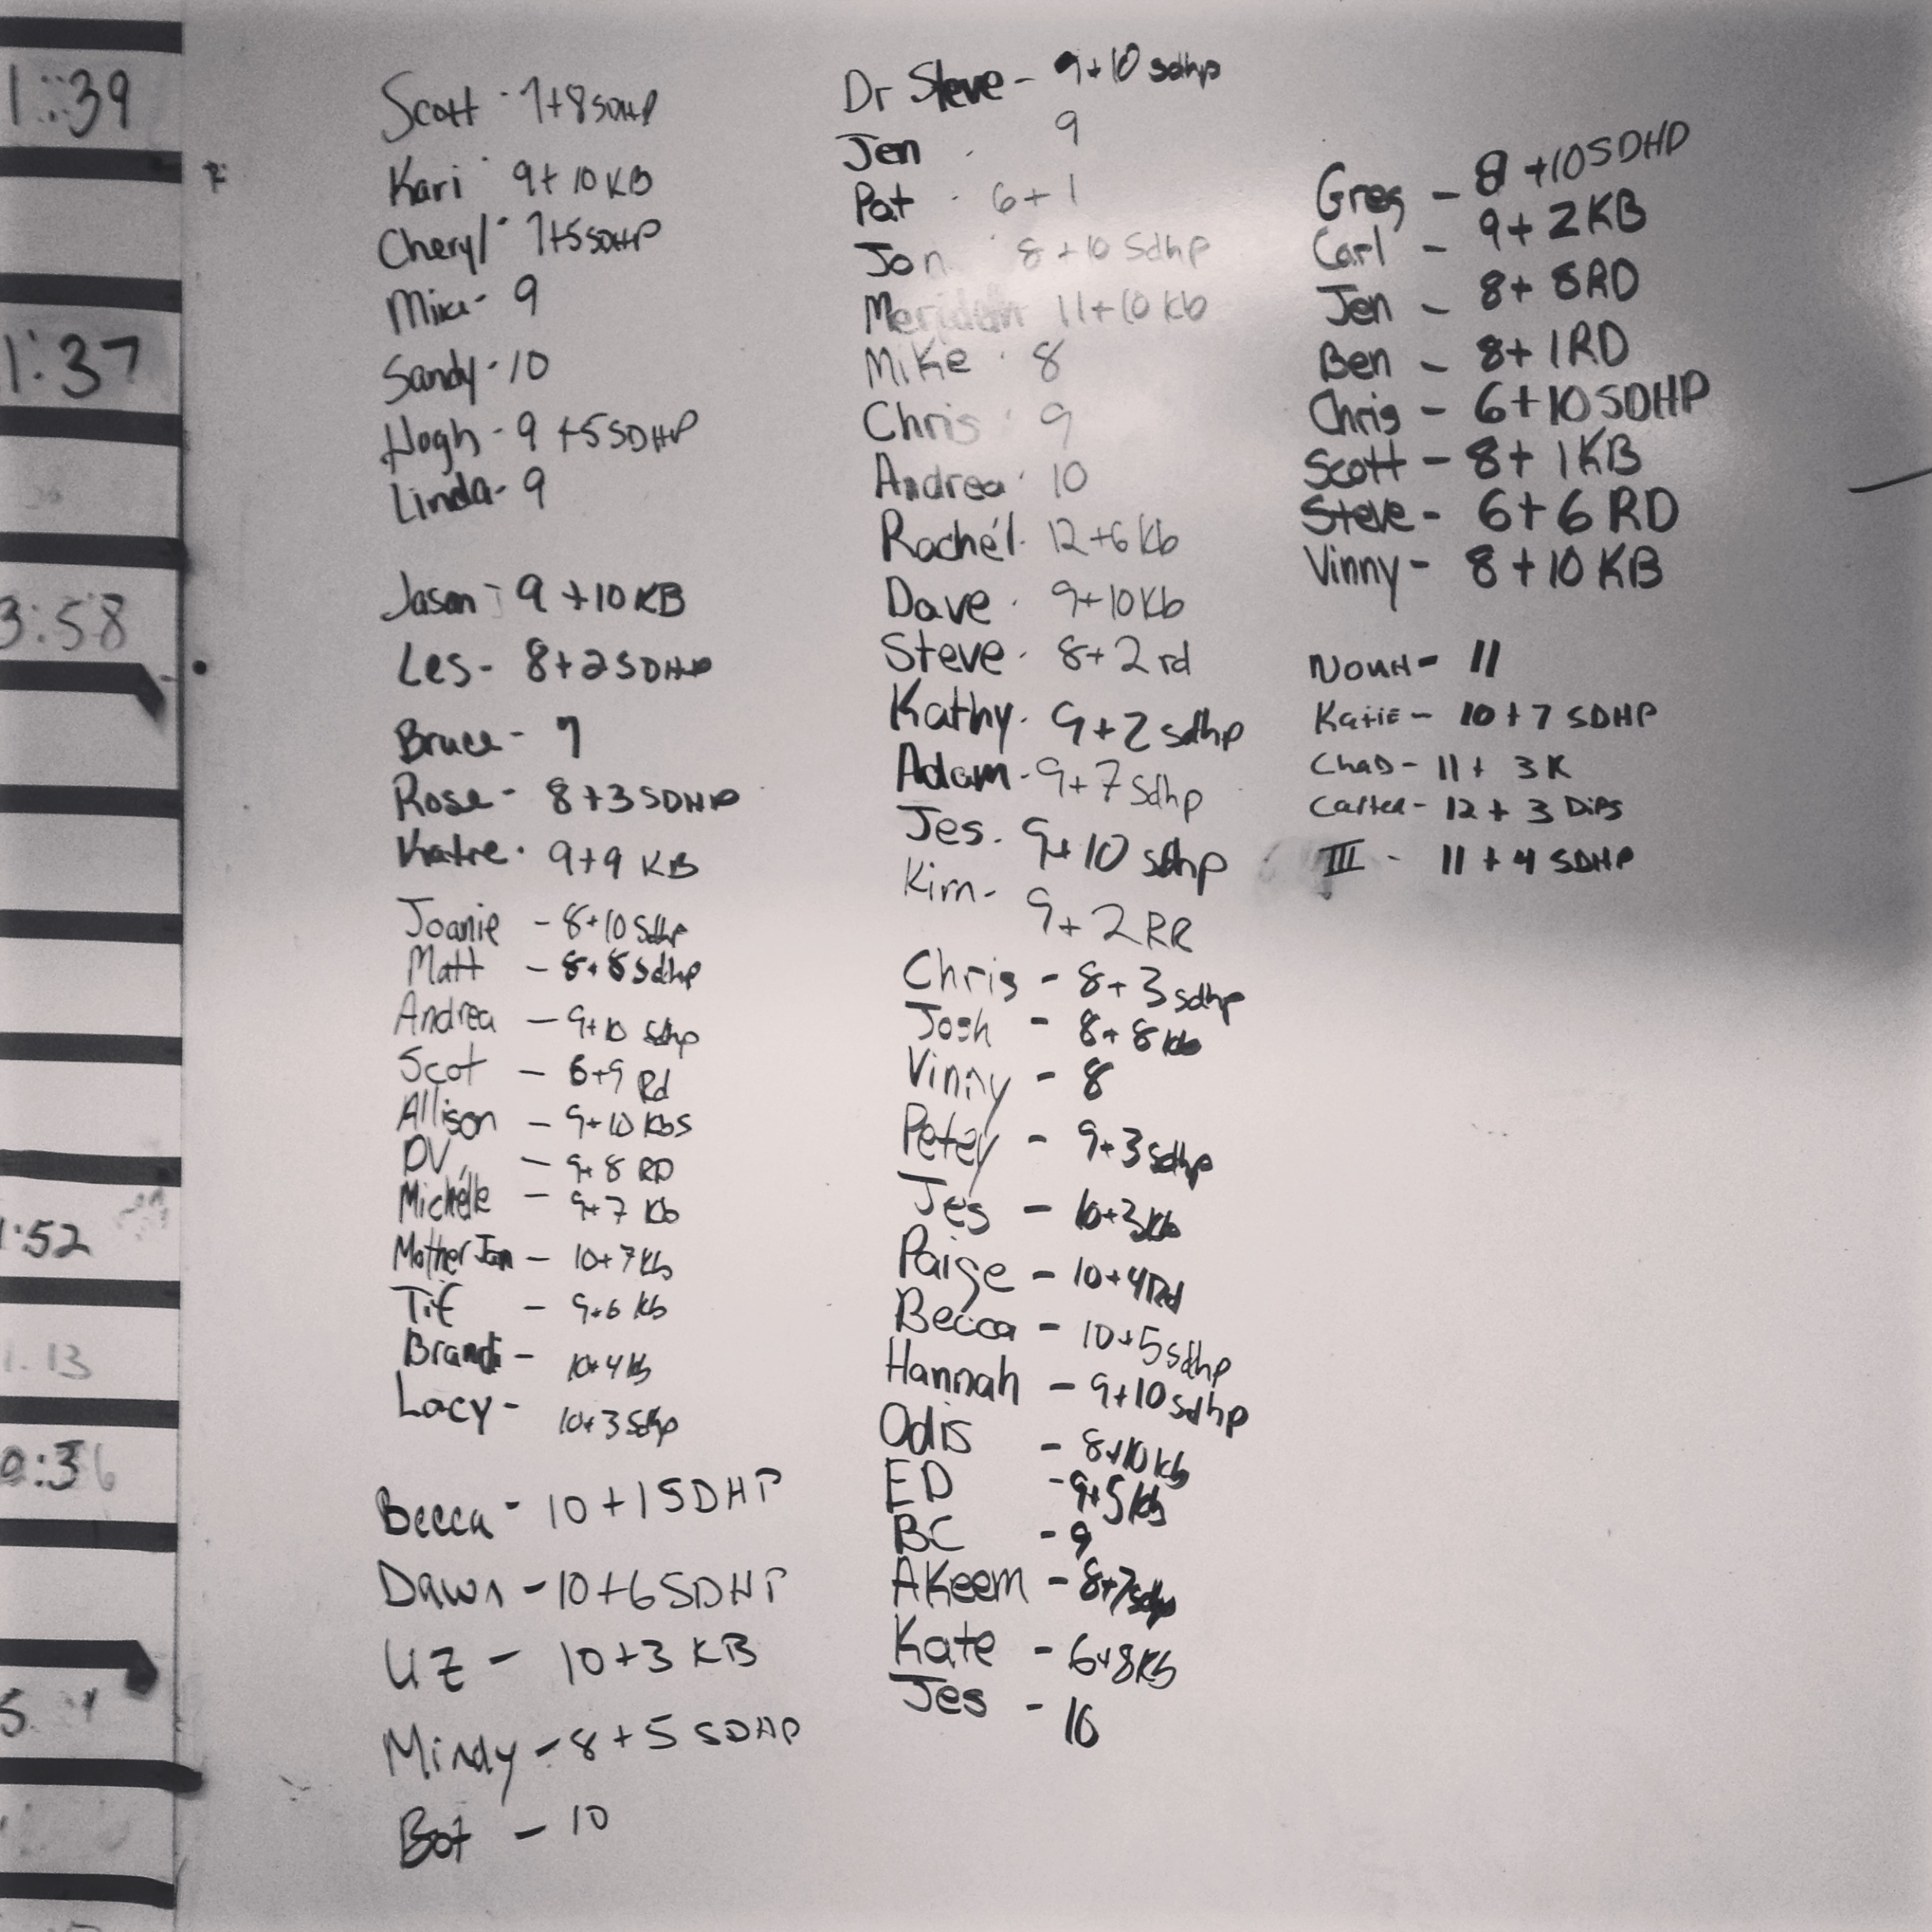 1:39
1:37
3:58
1:52
1.13
0:36
Scott - 7+8 SDHP
Kari - 9+10 KB
Cheryl - 7+5 SDHP
Mike - 9
Sandy - 10
Hogh - 9 +5 SDHP
Linda - 9
Jason - 9 +10 KB
Les - 8+2 SDHP
Bruce - 7
Rose - 8+3 SDHP
Katie - 9+9 KB
Joanie - 8+10 Sdhp
Matt - 8+8 Sdhp
Andrea - 9+10 Sdhp
Scot - 6+9 Rd
Allison - 9+10 Kbs
DV - 9+8 RD
Michelle - 9+7 Kb
Mother Jan - 10+7 Kb
Tif - 9+6 Kb
Brandi - 10+4 Kb
Lacy - 10+3 Sdhp
Becca - 10+1 SDHP
Dawn - 10+6 SDHP
UZ - 10+3 KB
Mindy - 8+5 SDHP
Bot - 10
Dr Steve - 9+10 sdhp
Jen - 9
Pat - 6+1
Jon - 8+10 Sdhp
Merideth 11+10 Kb
Mike - 8
Chris - 9
Andrea - 10
Rachel - 12+6 Kb
Dave - 9+10 Kb
Steve - 8+2 rd
Kathy - 9+2 sdhp
Adam - 9+7 Sdhp
Jes - 9+10 sdhp
Kim - 9+2 RR
Chris - 8+3 sdhp
Josh - 8+8 Kb
Vinny - 8
Petey - 9+3 sdhp
Jes - 10+3 Kb
Paige - 10+4 Rd
Becca - 10+5 sdhp
Hannah - 9+10 sdhp
Odis - 8+10 Kb
ED - 9+5 Kb
BC - 9
AKeem - 8+7 sdhp
Kate - 6+8 Kb
Jes - 10
Greg - 8 +10 SDHP
Carl - 9+2 KB
Jen - 8+8 RD
Ben - 8+1 RD
Chris - 6+10 SDHP
Scott - 8+1 KB
Steve - 6+6 RD
Vinny - 8+10 KB
Noun - 11
Katie - 10+7 SDHP
Chad - 11+3K
Carter - 12+3 Dips
III - 11+4 SDHP